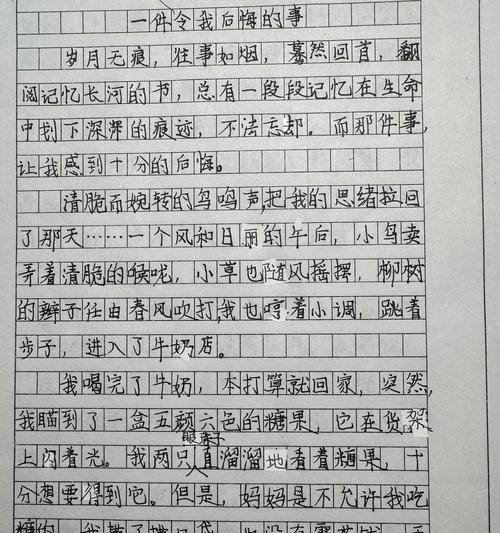 一件令我后悔的事
岁月无痕，往事如烟，蓦然回首，翻
阅记忆长河的书，总有一段段记忆在生命
中划下深深的痕迹，不法忘却。而那件事，
让我感到十分的后悔。
清脆而婉转的鸟鸣声，把我的思绪拉回
了那天……一个风和日丽的午后，小鸟卖
弄着清脆的喉咙，小草也随风摇摆，柳树
的辫子任由春风吹打，我也哼着小调，跳着
步子，进入了牛奶店。
我喝完了牛奶，本打算就回家，突然，
我瞄到了一盒五颜六色的糖果，它在货架
上闪着光。我两只眼珠子直溜溜地看着糖果，十
分想要得到它。但是，妈妈是不允许我吃
糖的